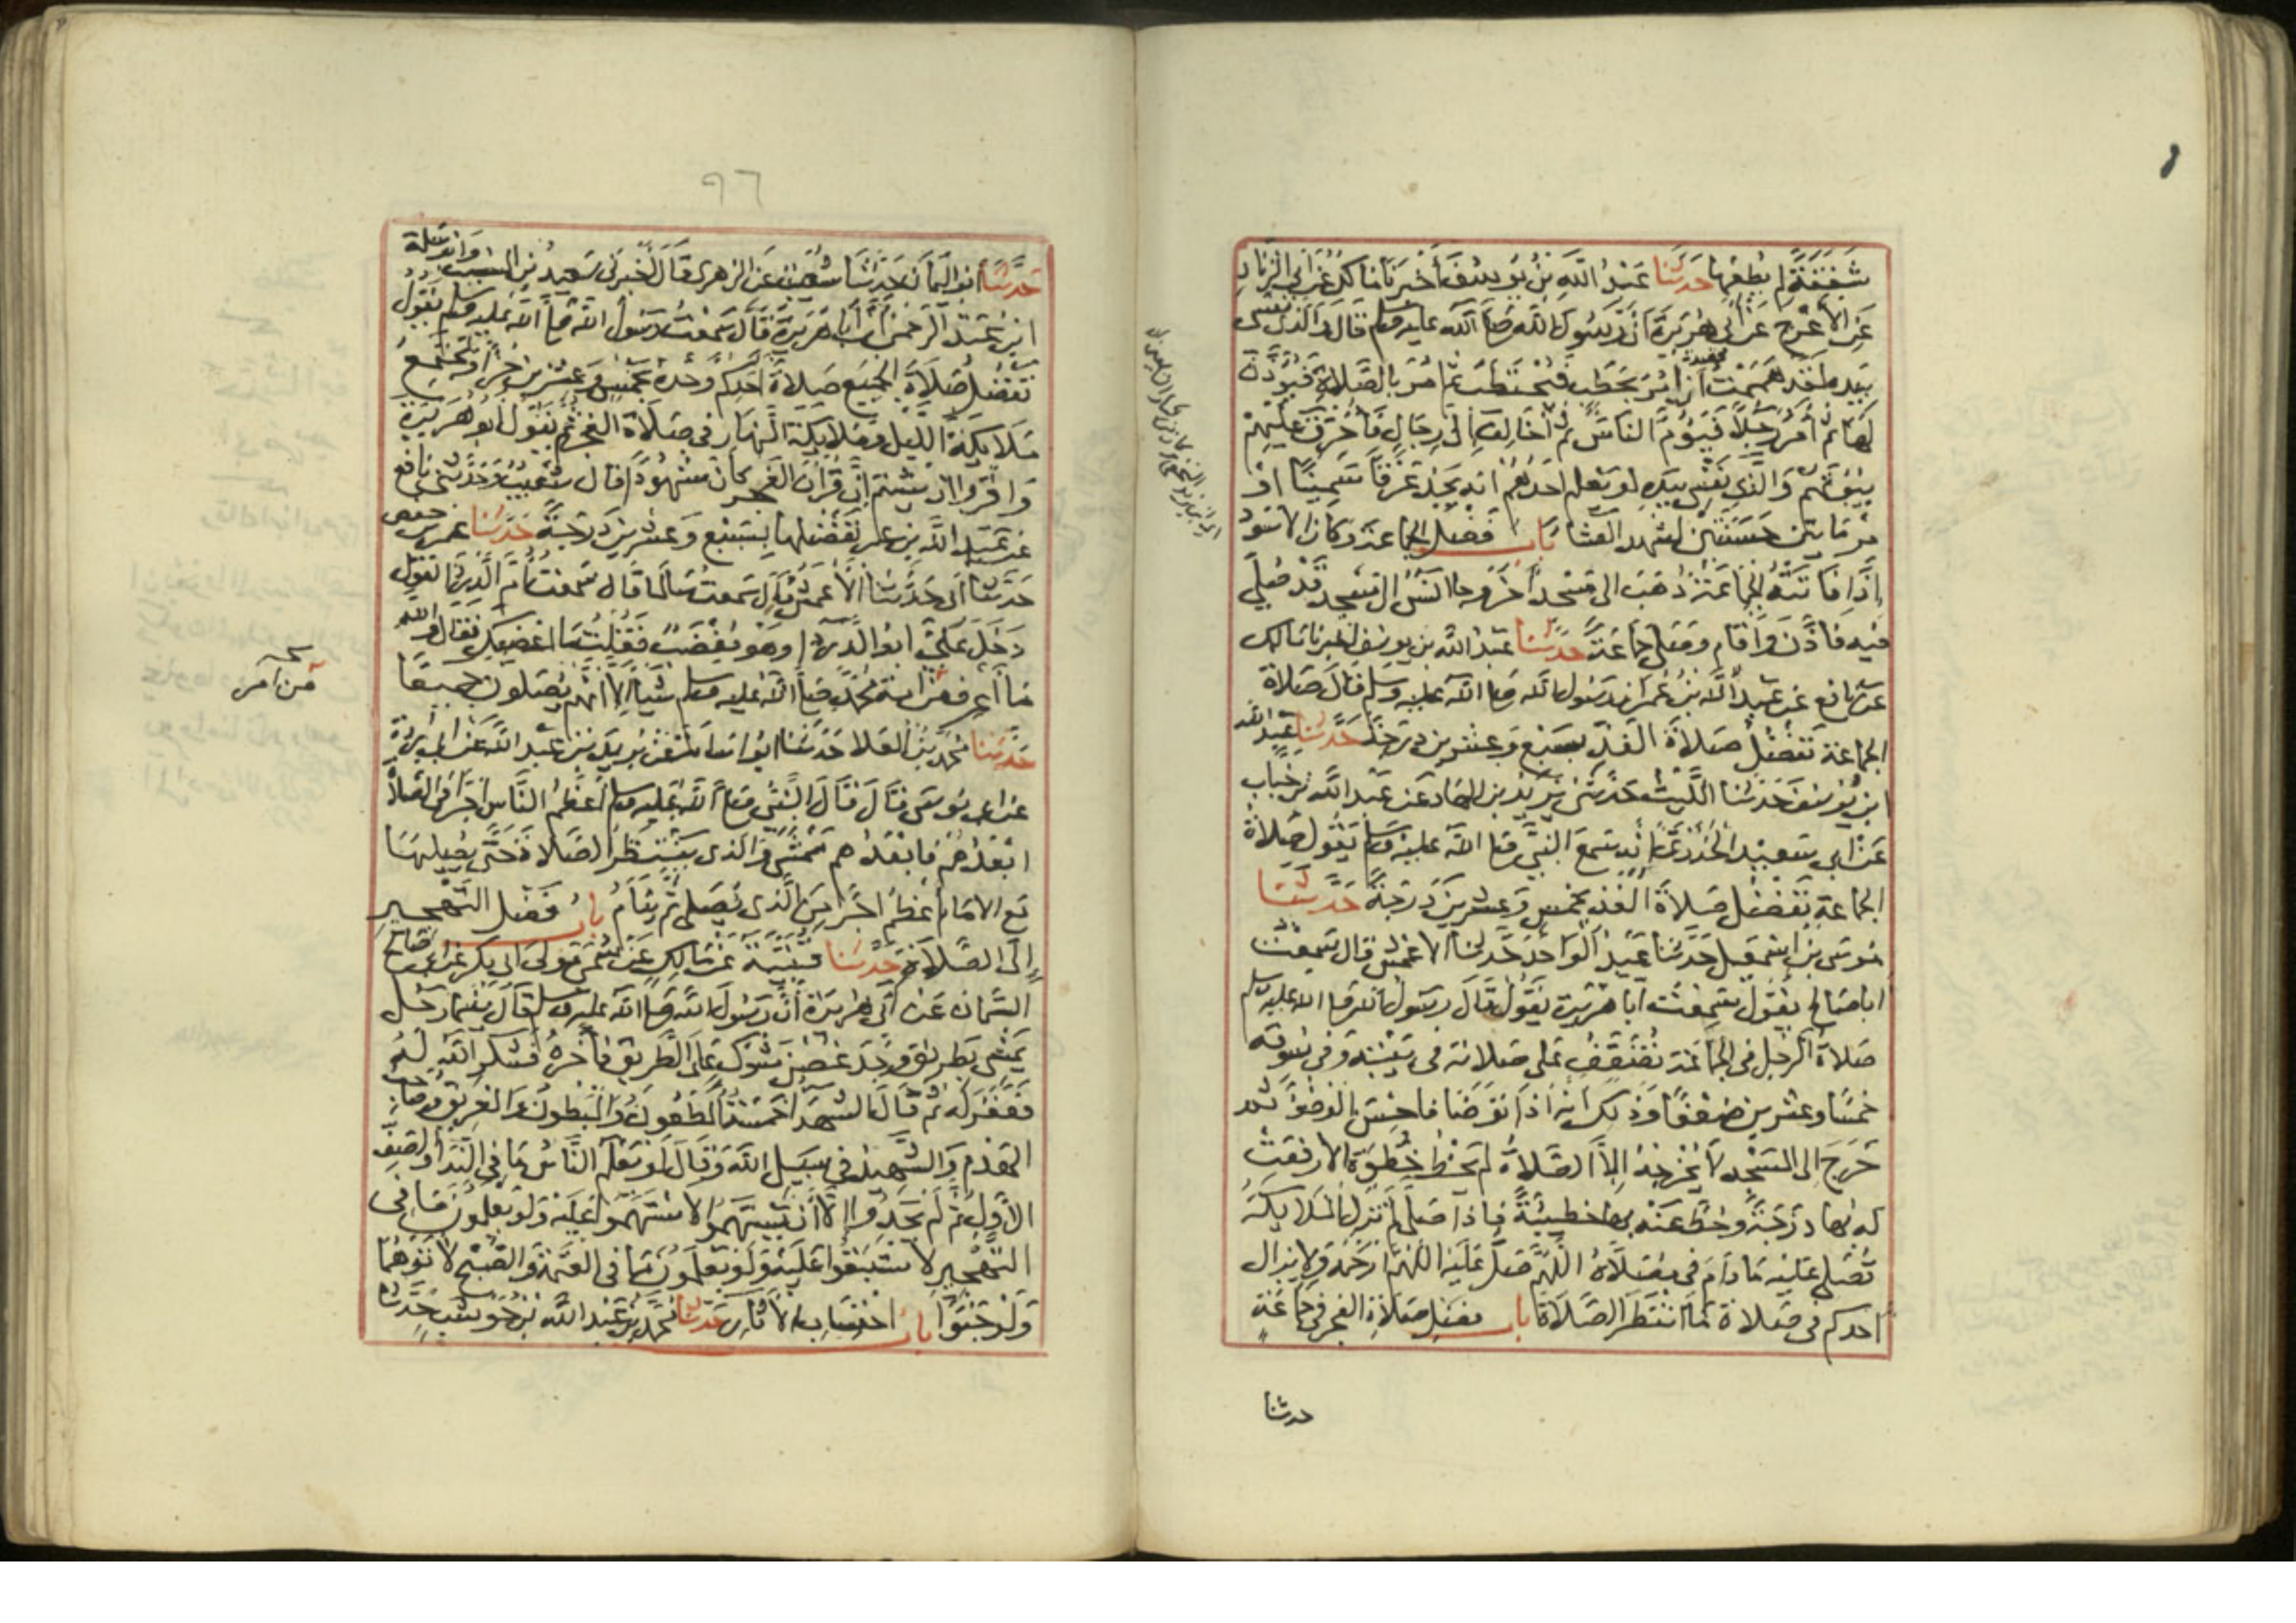 شفقة لم يطعها حدثنا عبد الله بن يوسف أخبرنا مالك عن أبي الزناد
عن الأعرج عن أبي هريرة أن رسول الله صلى الله عليه وسلم قال والذي نفسي
بيده لقد هممت أن آمر بحطب فيحتطب ثم آمر بالصلاة فيؤذن
لها ثم آمر رجلا فيؤم الناس ثم أخالف إلى رجال فأحرق عليهم
بيوتهم والذي نفسي بيده لو يعلم أحدهم أنه يجد عرقا سمينا أو
مرماتين حسنتين لشهد العشا باب فضل الجماعة وكان الأسود
إذا فاتته الجماعة ذهب إلى مسجد آخر وجا أنس إلى مسجد قد صلي
فيه فأذن وأقام وصلى جماعة حدثنا عبد الله بن يوسف أخبرنا مالك
عن نافع عن عبد الله بن عمر أن رسول الله صلى الله عليه وسلم قال صلاة
الجماعة تفضل صلاة الفذ بسبع وعشرين درجة حدثنا عبد الله
ابن يوسف حدثنا الليث حدثني يزيد بن الهاد عن عبد الله بن خباب
عن أبي سعيد الخدري أنه سمع النبي صلى الله عليه وسلم يقول صلاة
الجماعة تفضل صلاة الفذ بخمس وعشرين درجة حدثنا
موسى بن إسمعيل حدثنا عبد الواحد حدثنا الأعمش قال سمعت
أبا صالح يقول سمعت أبا هريرة يقول قال رسول الله صلى الله عليه وسلم
صلاة الرجل في الجماعة تضعف على صلاته في بيته وفي سوقه
خمسا وعشرين ضعفا وذلك أنه إذا توضأ فأحسن الوضوء ثم
خرج إلى المسجد لا يخرجه إلا الصلاة لم يخط خطوة إلا رفعت
له بها درجة وحط عنه بها خطيئة فإذا صلى لم تزل الملايكة
تصلي عليه ما دام في مصلاه اللهم صل عليه اللهم ارحمه ولا يزال
أحدكم في صلاة ما انتظر الصلاة باب فضل صلاة الفجر في جماعة
حدثنا
٩٦
حدثنا أبو اليمان حدثنا شعيب عن الزهري قال أخبرني سعيد بن المسيب وأبو سلمة
ابن عبد الرحمن أن أبا هريرة قال سمعت رسول الله صلى الله عليه وسلم يقول
تفضل صلاة الجميع صلاة أحدكم وحده بخمس وعشرين جزأ وتجتمع
ملايكة الليل وملايكة النهار في صلاة الفجر ثم يقول أبو هريرة
واقرؤا إن شيتم إن قرآن الفجر كان مشهودا قال شعيب وحدثني نافع
عن عبد الله بن عمر تفضلها بسبع وعشرين درجة حدثنا عمر بن حفص
حدثنا أبي حدثنا الأعمش قال سمعت سالما قال سمعت أم الدردا تقول
دخل علي أبو الدردا وهو مغضب فقلت ما أغضبك فقال والله
ما أعرف من أمة محمد صلى الله عليه وسلم شيا إلا أنهم يصلون جميعا
نسخة
من أمر
حدثنا محمد بن العلا حدثنا أبو أسامة عن بريد بن عبد الله عن أبي بردة
عن أبي موسى قال قال النبي صلى الله عليه وسلم أعظم الناس أجرا في الصلاة
أبعدهم فأبعدهم ممشى والذي ينتظر الصلاة حتى يصليها
مع الإمام أعظم أجرا من الذي يصلي ثم ينام باب فضل التهجير
إلى الصلاة حدثنا قتيبة عن مالك عن سمي مولى أبي بكر عن أبي صالح
السمان عن أبي هريرة أن رسول الله صلى الله عليه وسلم قال بينما رجل
يمشي بطريق وجد غصن شوك على الطريق فأخره فشكر الله له
فغفر له ثم قال الشهدا خمسة المطعون والمبطون والغريق وصاحب
الهدم والشهيد في سبيل الله وقال لو يعلم الناس ما في الندا والصف
الأول ثم لم يجدوا إلا أن يستهموا لاستهموا عليه ولو يعلمون ما في
التهجير لاستبقوا عليه ولو يعلمون ما في العتمة والصبح لأتوهما
ولو حبوا باب احتساب الآثار حدثنا محمد بن عبد الله بن حوشب حدثنا